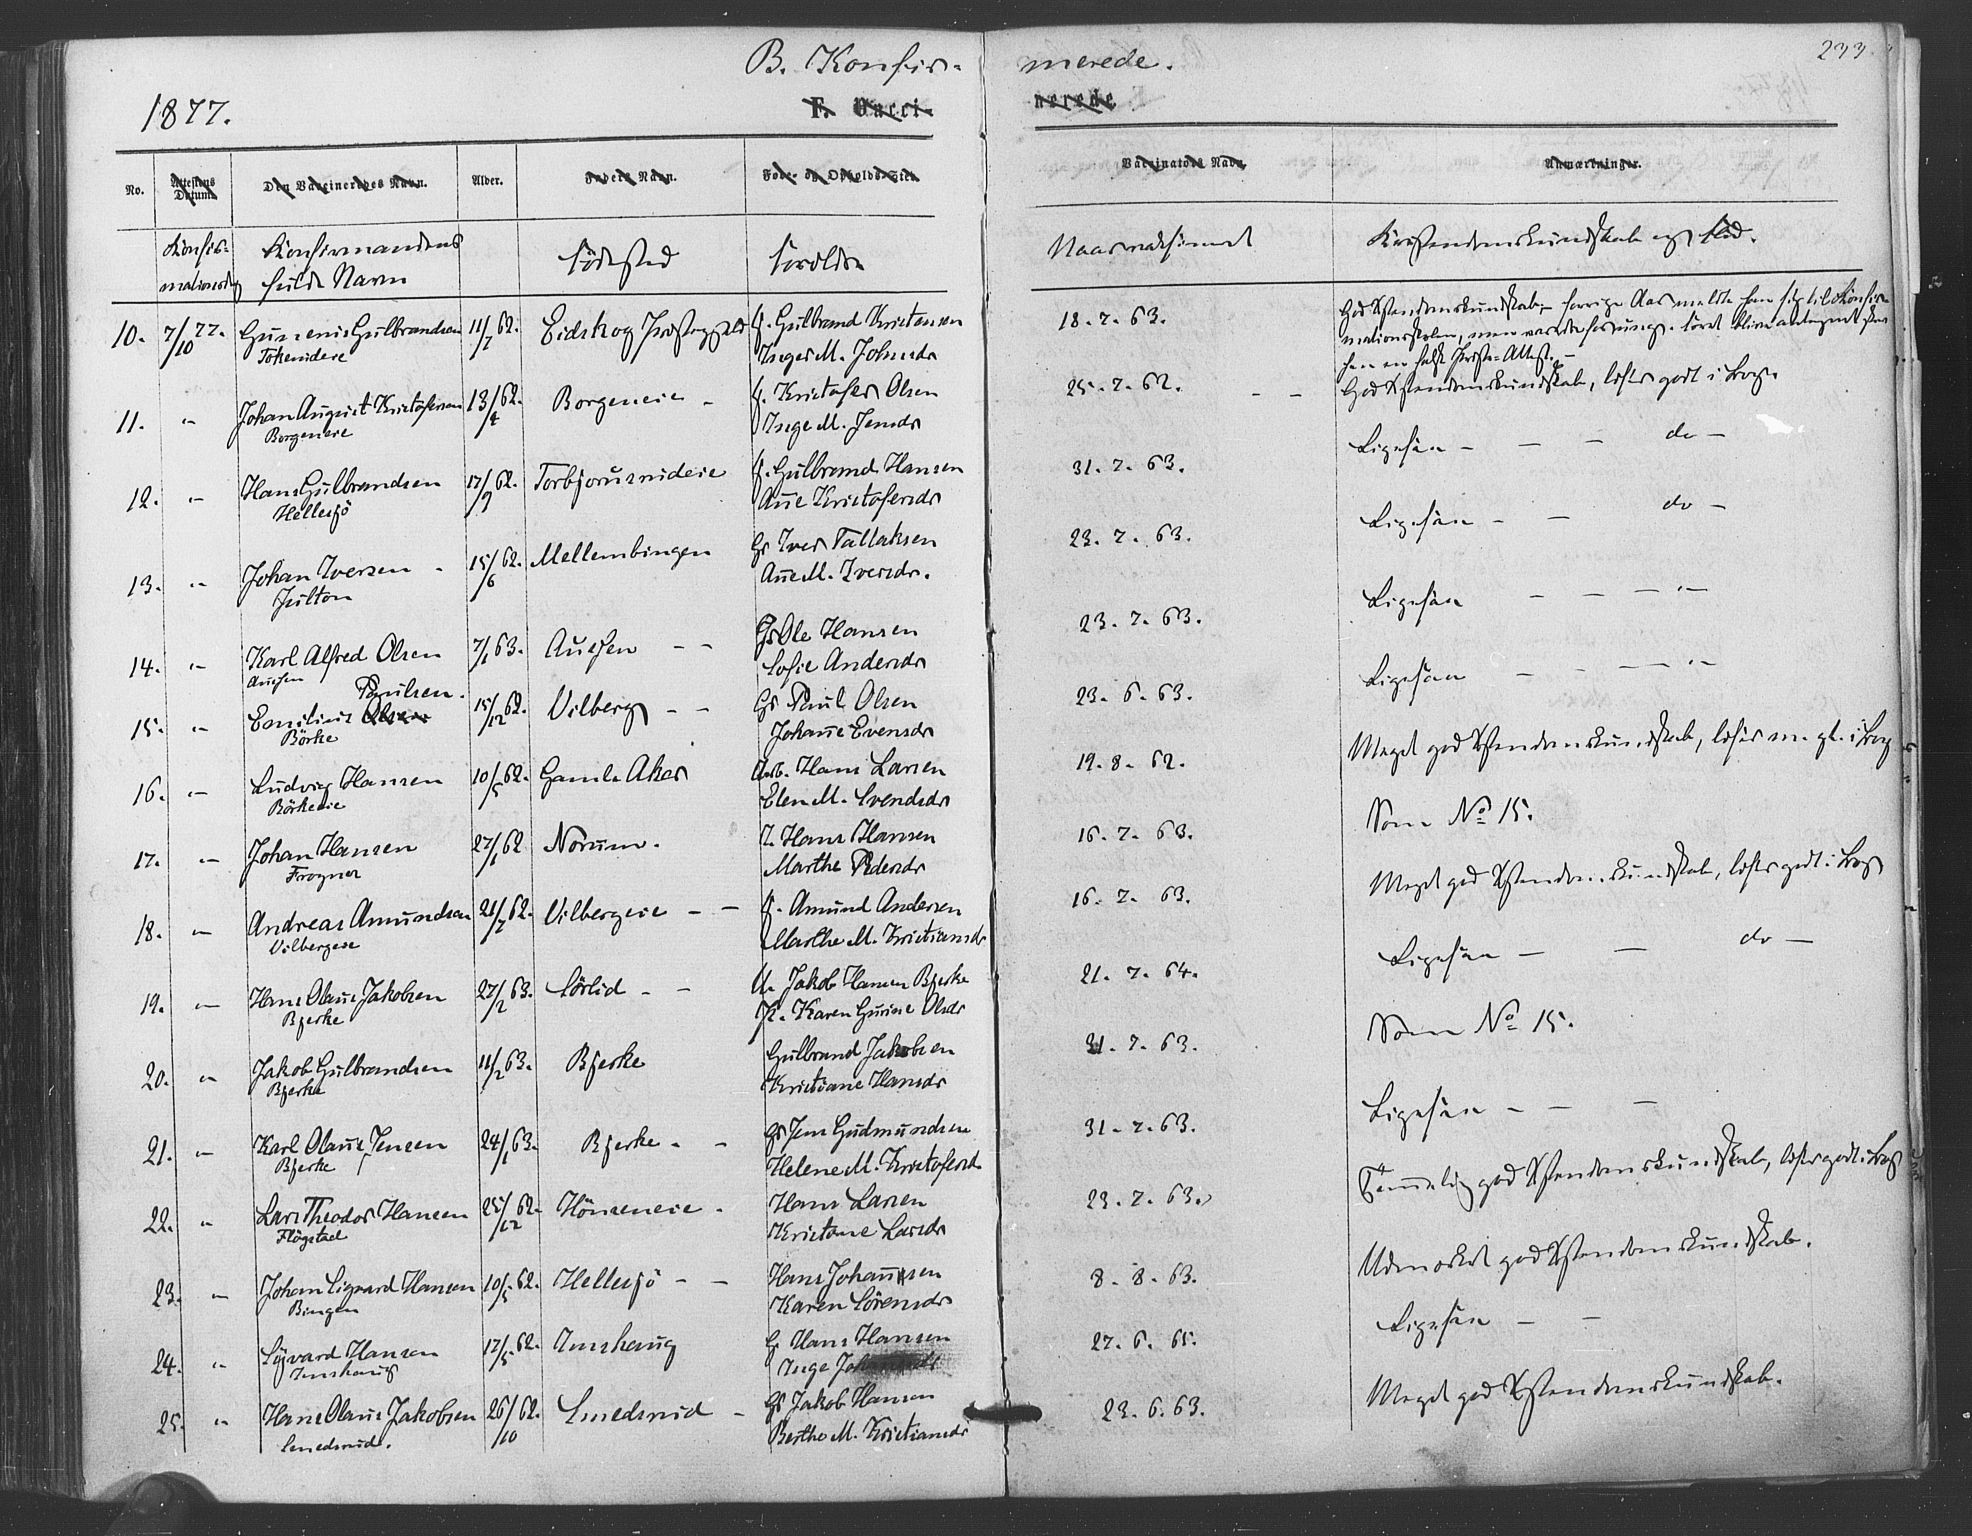 B. Konfir-
merede.
233
1877.
F. Vacci-
nerede
No.
Attestens Datum.
Den Vaccineredes Navn.
Alder.
Faders Navn.
Føde- og Opholds-Sted.
Vaccinators Navn.
Anmærkninger.
Konfir-
mationsdag
Konfirmandens
fulde Navn
Födested
Forældre
Naar vaksineret
Kristendomskundskab og Flid.
10. 7/10 77. Gunnerius Gulbrandsen 11/7 62. Eidskog Præstegjeld f. Gulbrand Kristensen 18. 7. 63. God Xstendomskundskab, forrige Aar meldte han sig til Konfir-
Inger M. Johnsdr mationsskolen, men var da for ung
11. " Johan August Kristofersen 13/4 62. Borgeneie - f. Kristofer Olsen 25. 7. 62. - - God Xstendomskundskab, læser godt i Bog.
Borgeneie Inge M. Jensdr
12. " Hans Gulbrandsen 17/9 62. Torbjörnsrudeie f. Gulbrand Hansen 31. 7. 63. Ligesaa - - - do -
Hellesjö Anne Kristofersdr
13. " Johan Iversen - 15/6 62. Mellembingen Gr Iver Tallaksen 23. 7. 63. Ligesaa - - do -
Julton Anne M. Iversdr.
14. " Karl Alfred Olsen 7/1 63. Auesen - - Gr Ole Hansen 23. 7. 63. Ligesaa - - - - " -
Auesen Sofie Andersdr
Paulsen.
15. " Emilius Olsen 15/12 62. Vilberg - - Gr Paul Olsen 23. 6. 63. Ligesaa - - - - " -
Börke Johanne Evensdr
16. " Ludvig Hansen 10/5 62. Gamle Aker Arb. Hans Larsen 19. 8. 62. Meget god Xstendomskundskab, læser m. gt. i Bog
Börkeeie Elen M. Svendsdr
17. " Johan Hansen 27/1 62 Norum. I. Hans Hansen 16. 7. 63. Som No 15.
Frogner Marthe Pedersdr
18. " Andreas Amundsen 21/7 62. Vilbergeie - - f. Amund Andersen 16. 7. 63. Meget god Xstendomskundskab, læser godt i Bog
Vilbergeie Marthe M. Kristiansdr
19. " Hans Olaus Jakobsen 27/2 63. Sörlid - - U. Jakob Hansen Bjerke 21. 7. 64. Ligesaa - - do -
Bjerke K. Karen Gurine Olsdr
20. " Jakob Gulbrandsen 11/2 63. Bjerke Gulbrand Jakobsen 31. 7. 63. Som No 15.
Bjerke Kristiane Hansdr
21. " Karl Olaus Jensen 24/1 63. Bjerke - - Gr Jens Gudmundsen 31. 7. 63. Ligesaa - - -
Bjerke Helene M. Kristofersd.
22. " Lars Theodor Hansen 25/12 62. Hönseneie - Hans Larsen 23. 7. 63. Temmelig god Xstendomskundskab, læser godt i Bog
Flögstad Kristine Larsdr
23. " Johan Sigvard Hansen 10/5 62. Hellesjö - - Hans Johannsen 8. 8. 63. Udmerket god Xstendomskundskab.
Bingen Karen Sörensdr
24. " Sigvard Hansen 17/5 62. Imshaug G. Hans Hansen 27. 6. 65. Ligesaa - -
Imshaug Inge
25. " Hans Olaus Jakobsen 26/10 62. Smedsrud - Gr Jakob Hansen 23. 6. 63. Meget god Xstendomskundskab.
Smedsrud. Berthe M. Kristiansdr